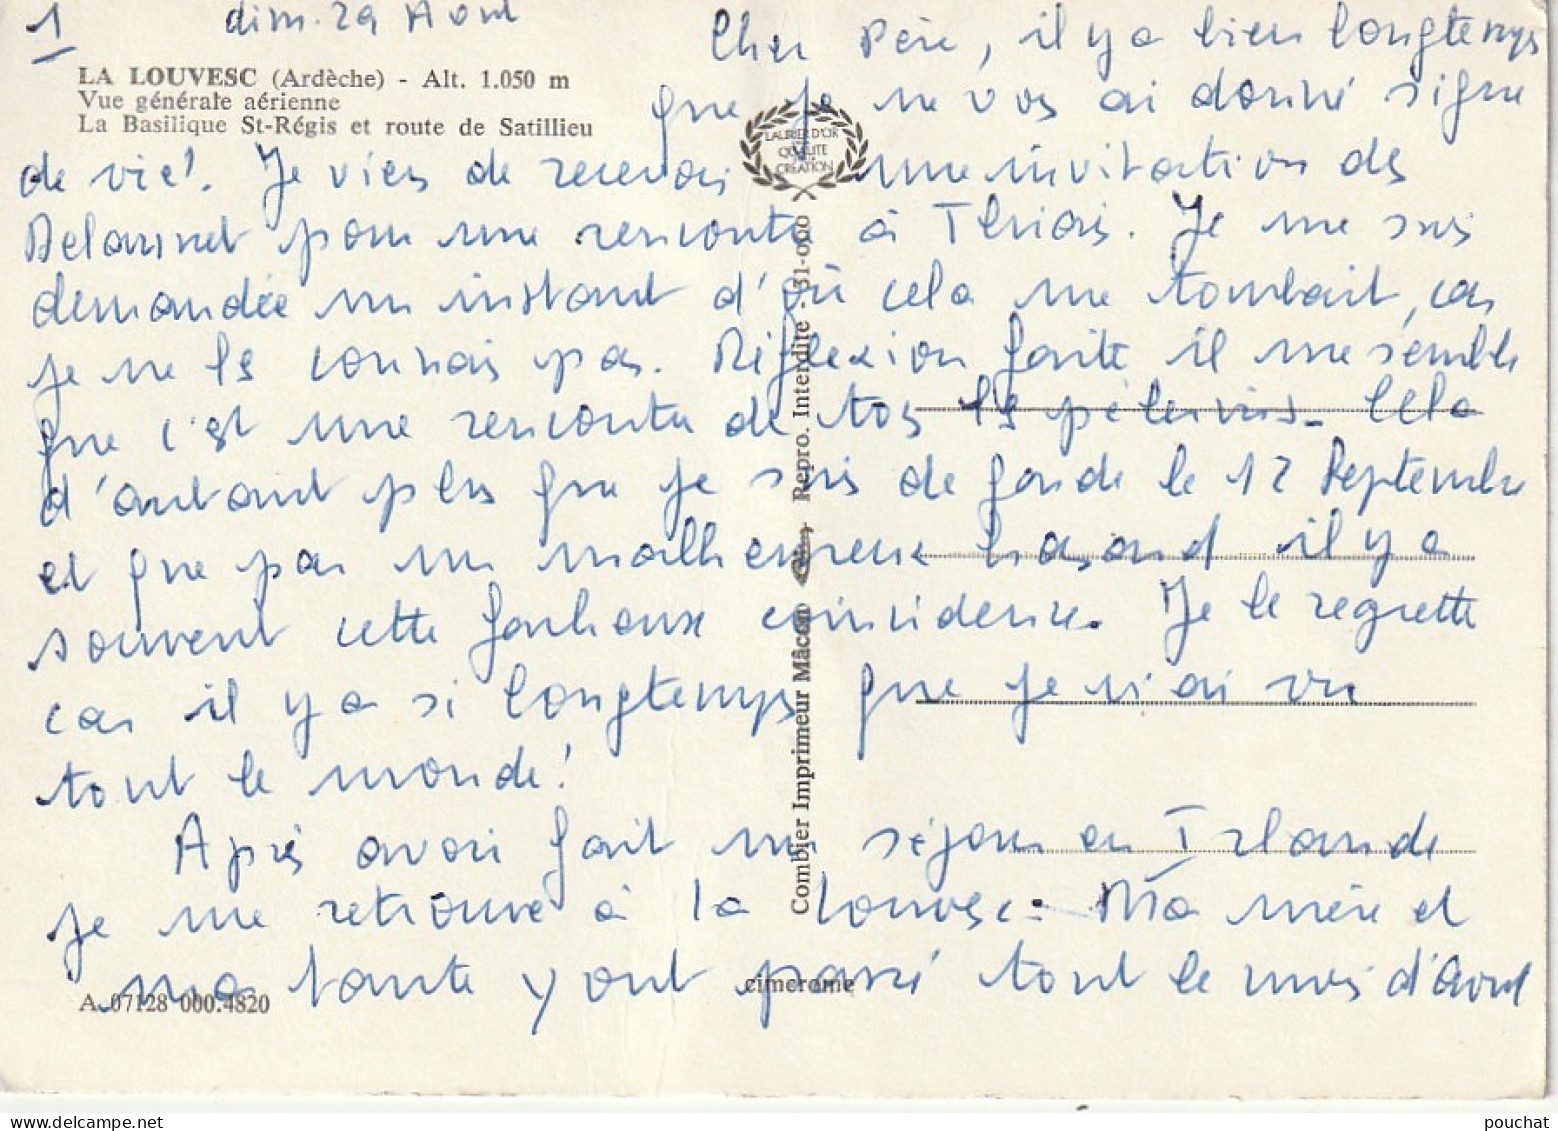 1
dim. 29 Août
Cher Père, il y a bien longtemps
LA LOUVESC (Ardèche) - Alt. 1.050 m
Vue générale aérienne
La Basilique St-Régis et route de Satillieu
que je ne vos ai donné signe
LAURIER D'OR
QUALITE
CREATION
de vie! Je viens de recevoir une invitation des
Delaunet pour une rencontre à Thiais. Je me suis
demandée un instant d'où cela me tombait, car
je ne les connais pas. Réflexion faite il me semble
que c'est une rencontre de tos les pèlerins. Cela
d'autant plus que je suis de garde le 12 Septembre
et que par un malheureux hasard il y a
souvent cette fâcheuse coincidence. Je le regrette
car il y a si longtemps que je n'ai vu
tout le monde!
Après avoir fait un séjour en Irlande
je me retrouve à la Louvesc. Ma mère et
ma tante y ont passé tout le mois d'août
A. 07128 000.4820
cimcrome
Combier Imprimeur Mâcon
Repro. Interdite - 31-000
www.delcampe.net
pouchat